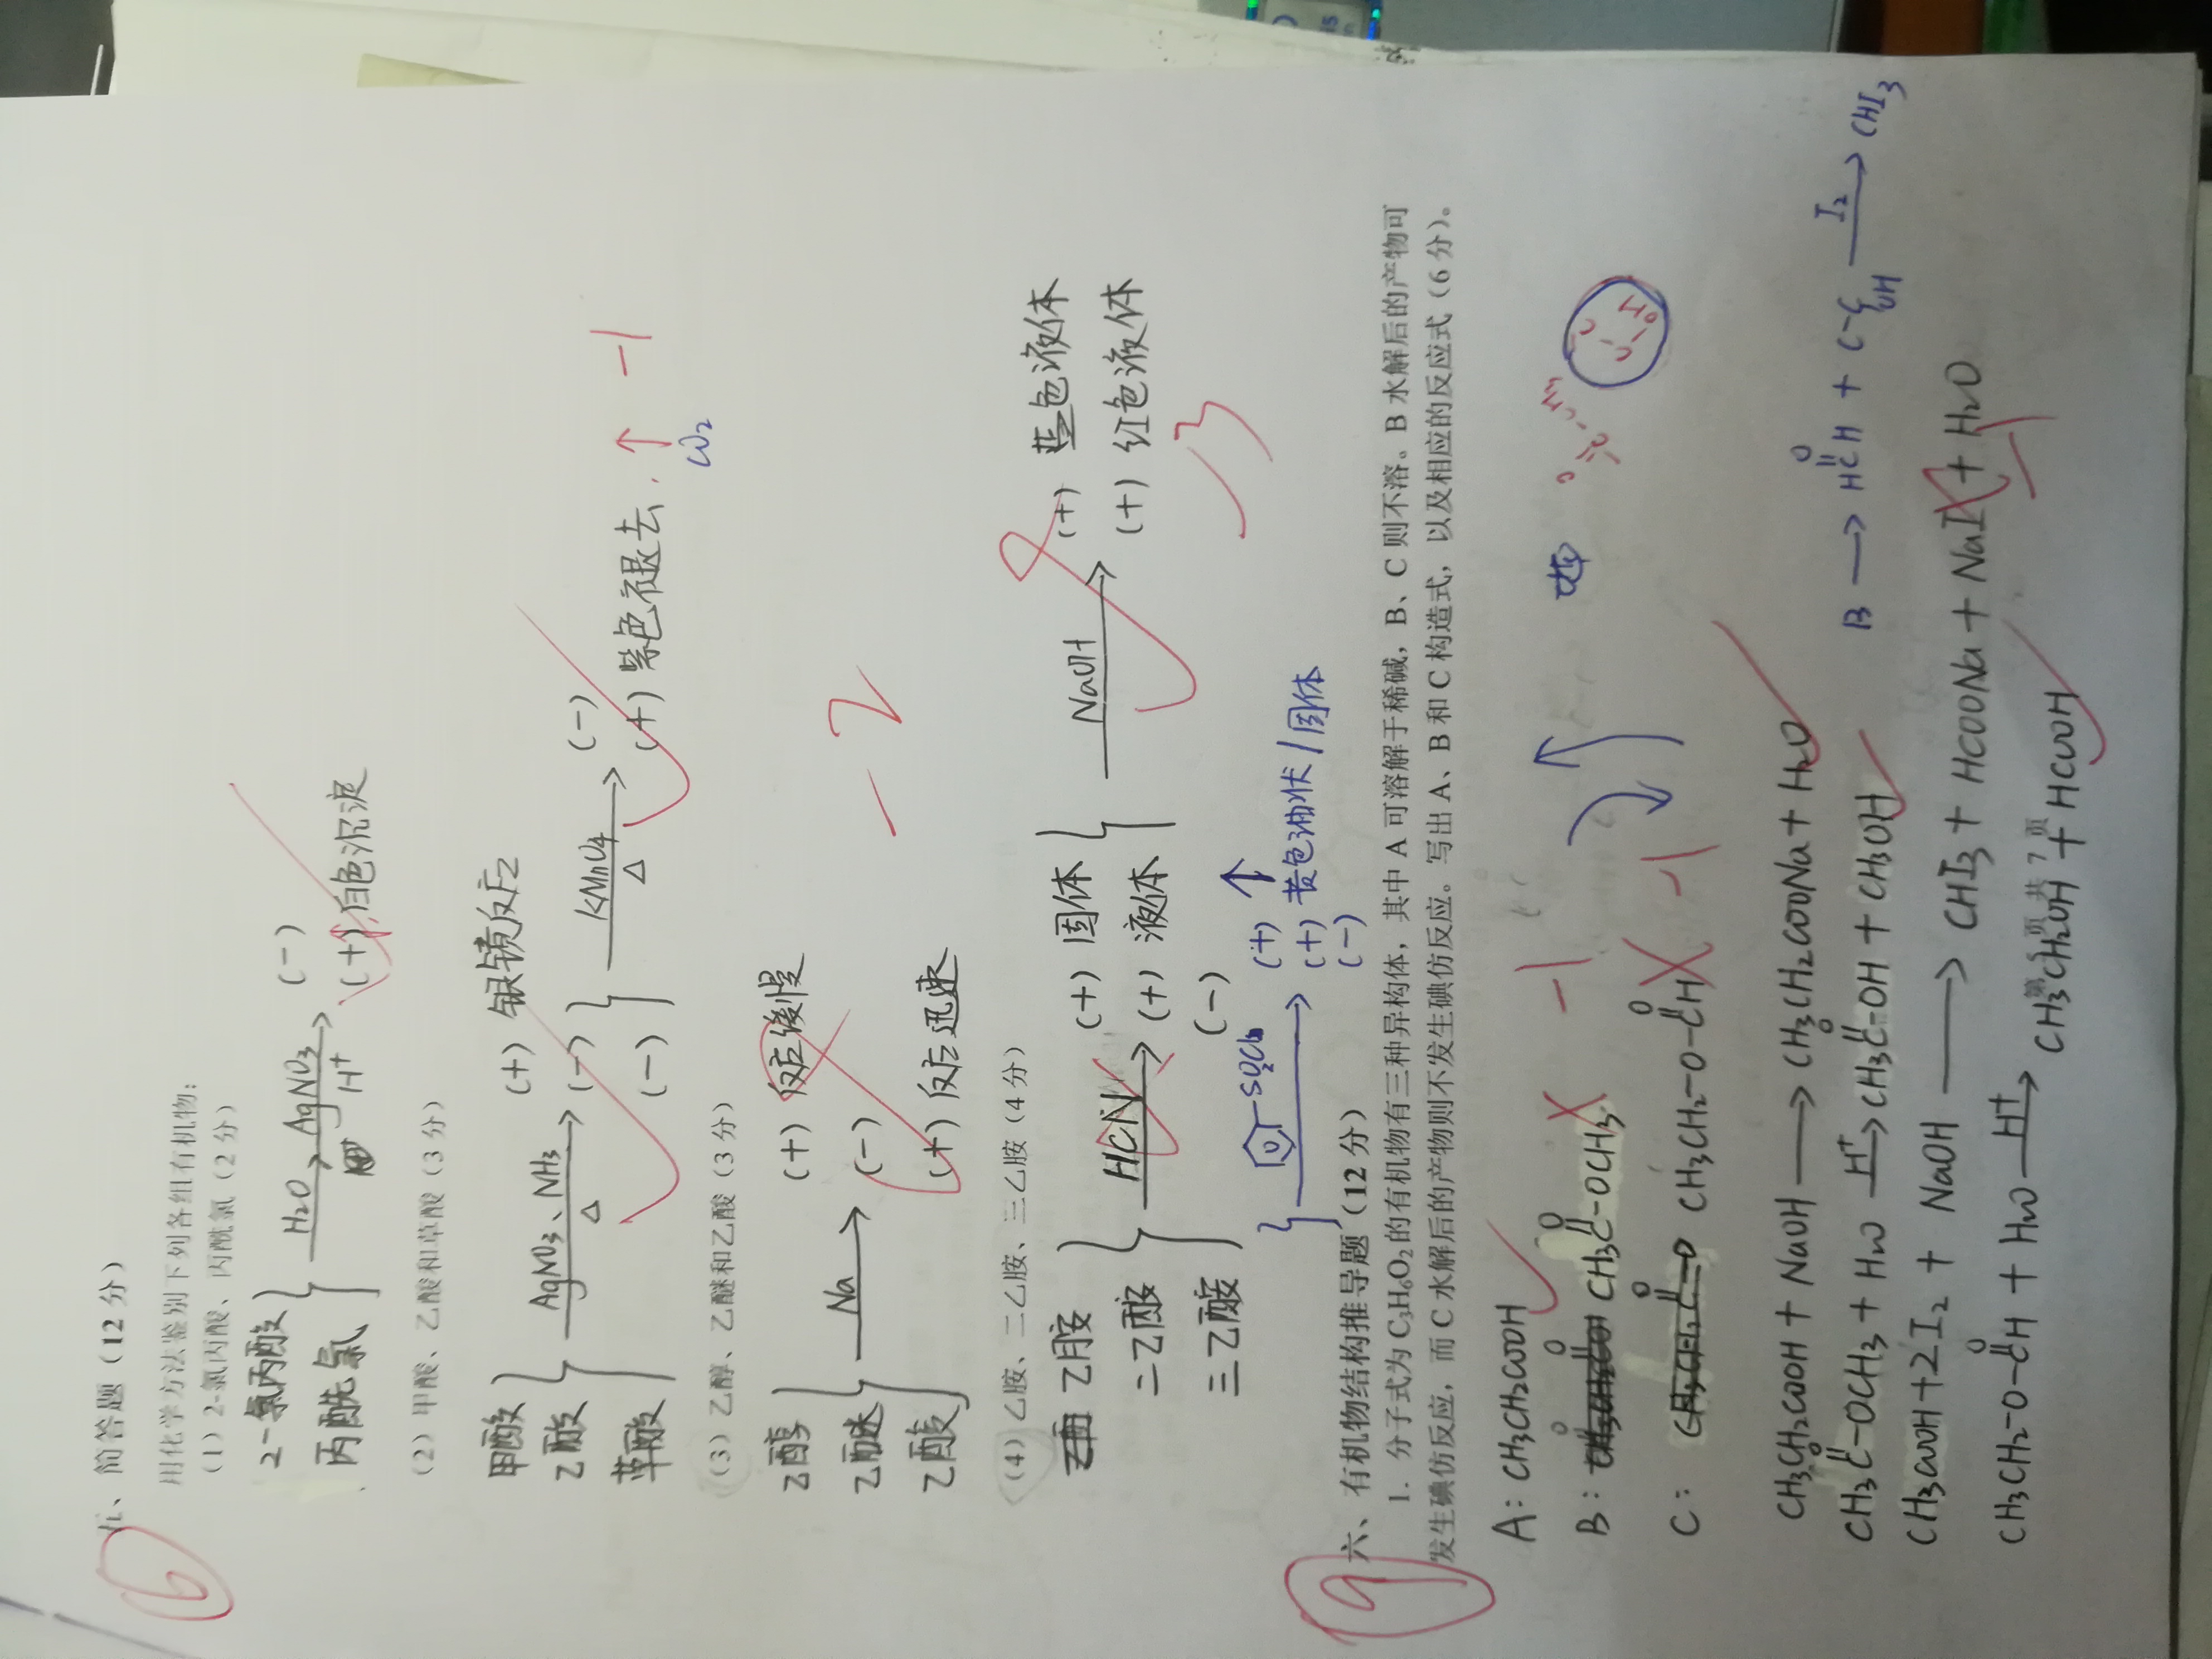 五、简答题（12分）
用化学方法鉴别下列各组有机物：
（1）2-氯丙酸、丙酰氯（2分）
2-氯丙酸
丙酰氯
H₂O
AgNO₃
H⁺
(-)
(+) 白色沉淀
（2）甲酸、乙酸和草酸（3分）
甲酸
乙酸
草酸
AgNO₃、NH₃
△
(+) 银镜反应
(-)
(-)
KMnO₄
△
(-)
(+) 紫色褪去
↑
-1
CO₂
（3）乙醇、乙醚和乙酸（3分）
乙醇
乙醚
乙酸
Na
(+) 反应缓慢
(-)
(+) 反应迅速
-2
（4）乙胺、二乙胺、三乙胺（4分）
乙胺
二乙胺
三乙胺
(+) 固体
(+) 液体
(-)
NaOH
(+) 蓝色液体
(+) 红色液体
-3
(+) ↑
(+) 黄色油状/固体
(-)
六、有机物结构推导题（12分）
1. 分子式为C₃H₆O₂的有机物有三种异构体，其中A可溶解于稀碱，B、C则不溶。B水解后的产物可
发生碘仿反应，而C水解后的产物则不发生碘仿反应。写出A、B和C构造式，以及相应的反应式（6分）。
A: CH₃CH₂COOH
B: CH₃C(=O)-OCH₃ -1
C: CH₃CH₂-O-C(=O)H -1
CH₃CH₂COOH + NaOH → CH₃CH₂COONa + H₂O
CH₃C(=O)-OCH₃ + H₂O —H⁺→ CH₃C(=O)-OH + CH₃OH
CH₃COOH + 2I₂ + NaOH → CHI₃ + HCOONa + NaI + H₂O
-1
CH₃CH₂-O-C(=O)H + H₂O —H⁺→ CH₃CH₂OH + HCOOH
第5页 共7页
6
9